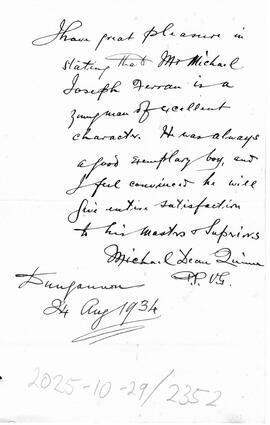 I have great pleasure in
stating that Mr Michael
Joseph Ferran is a
young man of excellent
character. He was always
a good exemplary boy, and
I feel convinced he will
give entire satisfaction
to his masters & Supriors
Michael Dean Quinn
P.P. V.G.
Dungannon
24 Aug 1934
2025-10-29/2352